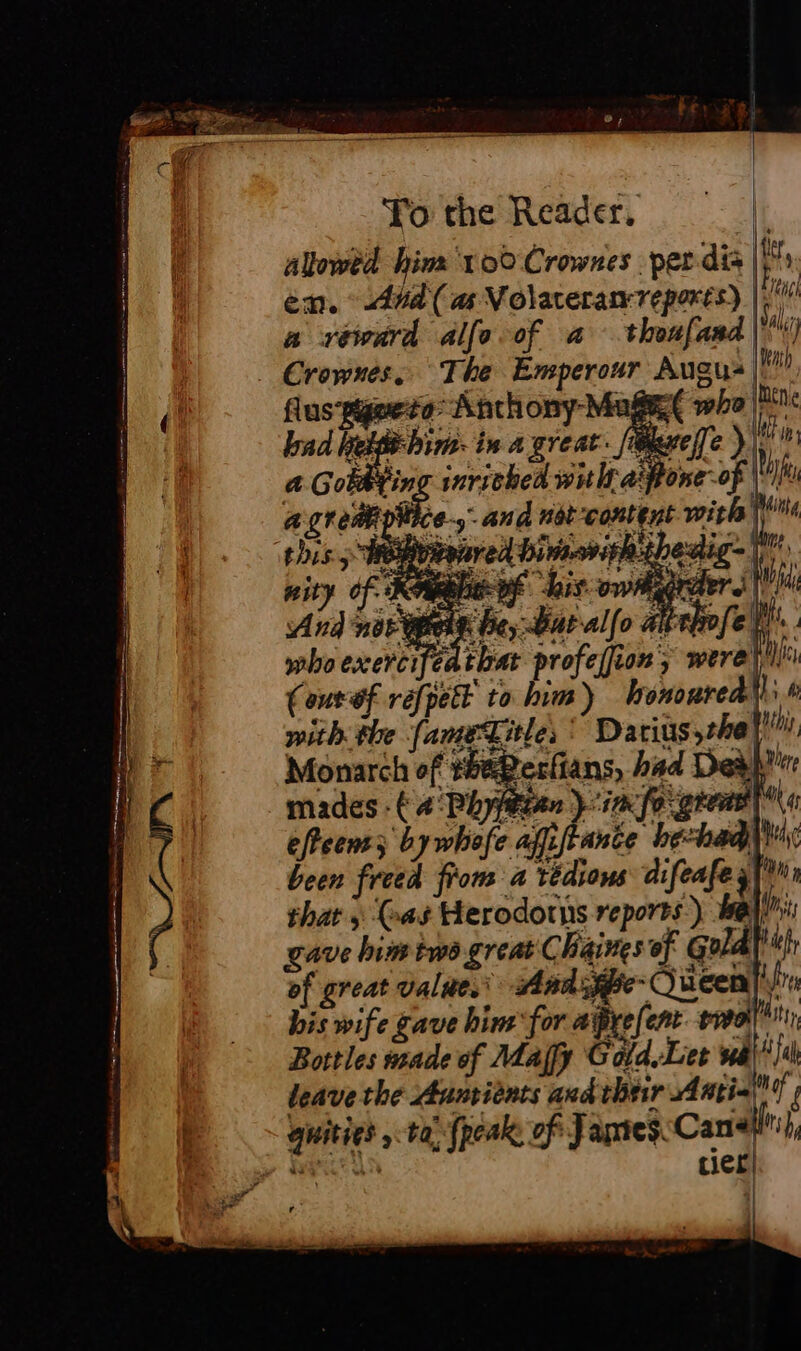 To the Reader.
allowed him 100 Crownes per di=
em. And ( as Volateran reports)
a reward alſo of a thouſand
Crownes. The Emperour Augu=
ſtus gave to Anthony Muſa ( who
had helpt him in a great ſickneſſe )
a Gold Ring inriched with a ſtone of
a great price, and not content with
this, honoured him with the dig-
nity of Knight of his own order;
And not only he, but alſo all thoſe
who exerciſed that profeſſion, were
(out of reſpect to him) honoured
with the ſame Title; Darius, the
Monarch of the Perſians, had De
mades ( a Phyſitian ) in ſo great
eſteem; by whoſe aſſiſtance he had
been freed from a tedious diſeaſe;
that, (as Herodotus reports) he
gave him two great Chaines of Gold
of great value. And the Queen
his wife gave him for a preſent two
Bottles made of Maſſy Gold. Let us
leave the Auntients and their Anti=
quities, to ſpeak of James Can=
tier